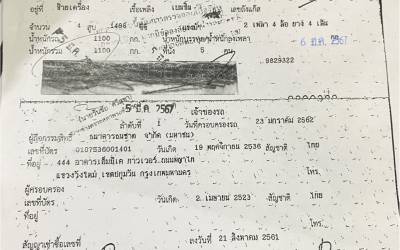 อยู่ที่ ซ้ายเครื่อง เชื้อเพลิง เบนซิน เลขถังแก๊ส
จำนวน 4 สูบ 1496 ซีซี 2 เพลา 4 ล้อ ยาง 4 เส้น
น้ำหนักรถ 1100 กก. น้ำหนักบรรทุก/น้ำหนักลงเพลา กก.
น้ำหนักรวม 1100 กก. ที่นั่ง 5 คน
6 มี.ค. 2567
9829322
5 มี.ค. 2567 เจ้าของรถ
ลำดับที่ 1 วันที่ครอบครองรถ 23 มกราคม 2562
ผู้ถือกรรมสิทธิ์ ธนาคารธนชาต จำกัด (มหาชน)
เลขที่บัตร 0107536001401 วันเกิด 19 พฤศจิกายน 2536 สัญชาติ ไทย
ที่อยู่ 444 อาคารเอ็มบีเค ทาวเวอร์ ถนนพญาไท
แขวงวังใหม่ เขตปทุมวัน กรุงเทพมหานคร โทร.
ผู้ครอบครอง
เลขที่บัตร วันเกิด 2 เมษายน 2523 สัญชาติ ไทย
ที่อยู่
โทร.
สัญญาเช่าซื้อเลขที่ ลงวันที่ 21 สิงหาคม 2561